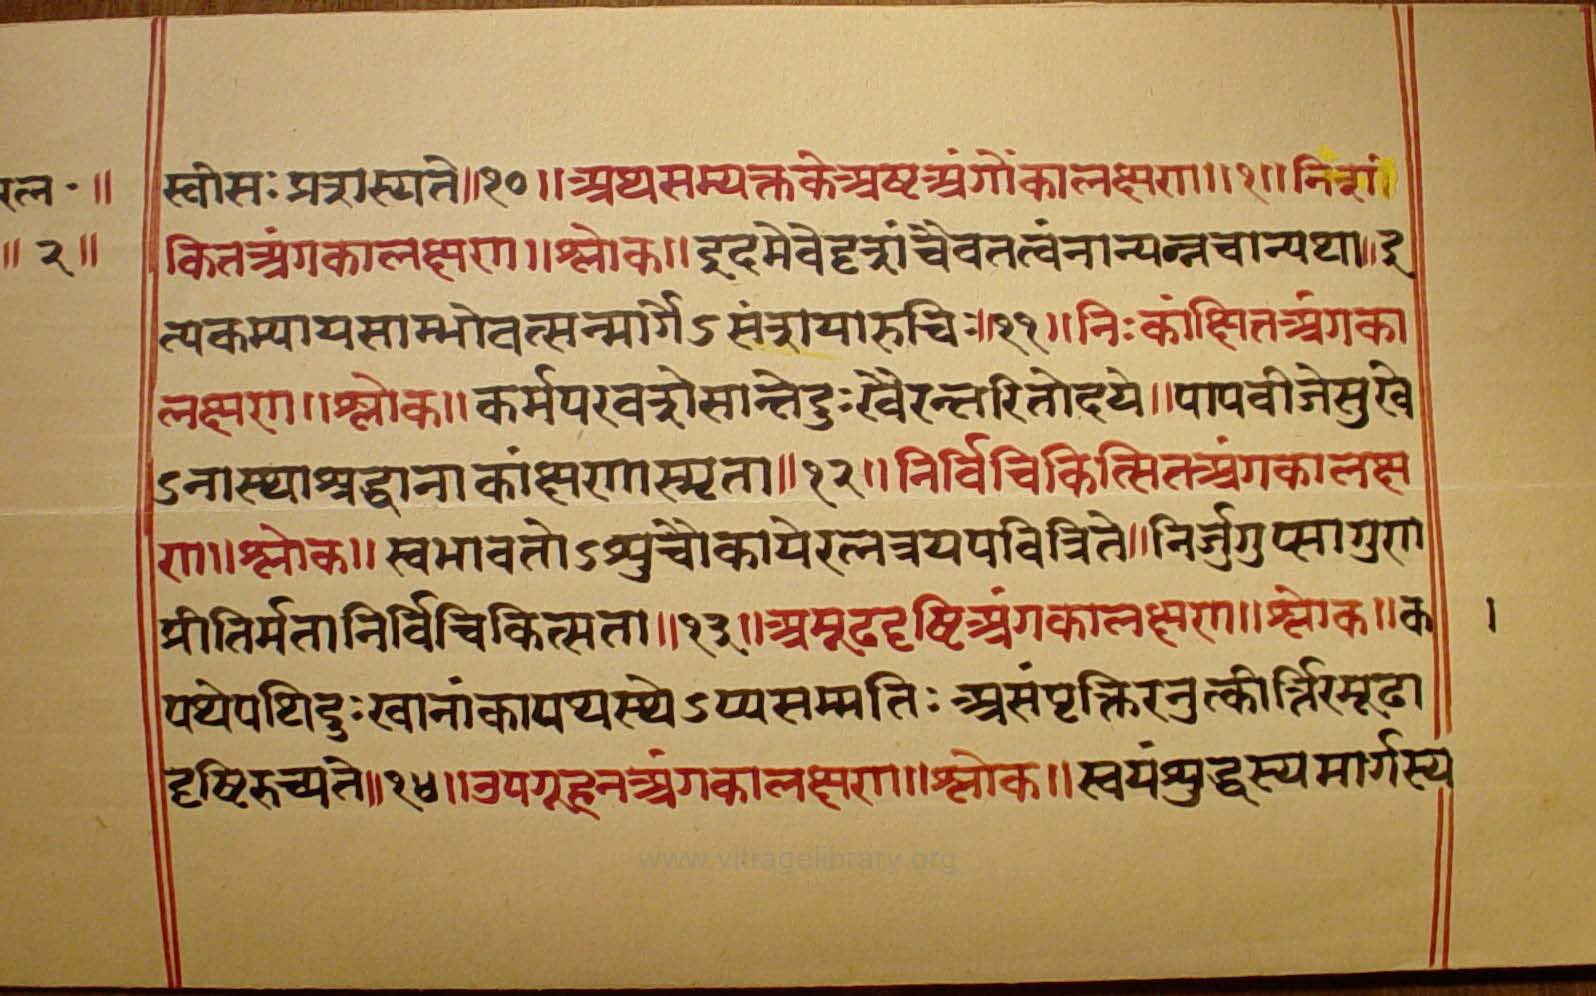 रत्न॰॥ स्वीसः प्रशस्यते॥१०॥अथसम्यक्तकेअष्टअंगोंकालक्षण॥१॥निशं
॥२॥ कितअंगकालक्षण॥श्लोक॥इदमेवेदृशंचैवतत्वंनान्यन्नचान्यथा॥इ
त्यकम्पायसाम्भोवत्सन्मार्गेऽसंशयारुचिः॥११॥निःकांक्षितअंगका
लक्षण॥श्लोक॥कर्मपरवशेसान्तेदुःखैरन्तरितोदये॥पापवीजेसुखे
ऽनास्थाश्रद्धानाकांक्षणास्मृता॥१२॥निर्विचिकित्सितअंगकालक्ष
ण॥श्लोक॥स्वभावतोऽशुचौकायेरत्नत्रयपवित्रिते॥निर्जुगुप्सागुण
प्रीतिर्मतानिर्विचिकित्सता॥१३॥अमूढदृष्टिअंगकालक्षण॥श्लोक॥क ।
पथेपथिदुःखानांकापथस्थेऽप्यसम्मतिः असंपृक्तिरनुत्कीर्त्तिरमूढा
दृष्टिरुच्यते॥१४॥उपगूहनअंगकालक्षण॥श्लोक॥स्वयंशुद्धस्यमार्गस्य
www.vitragelibrary.org